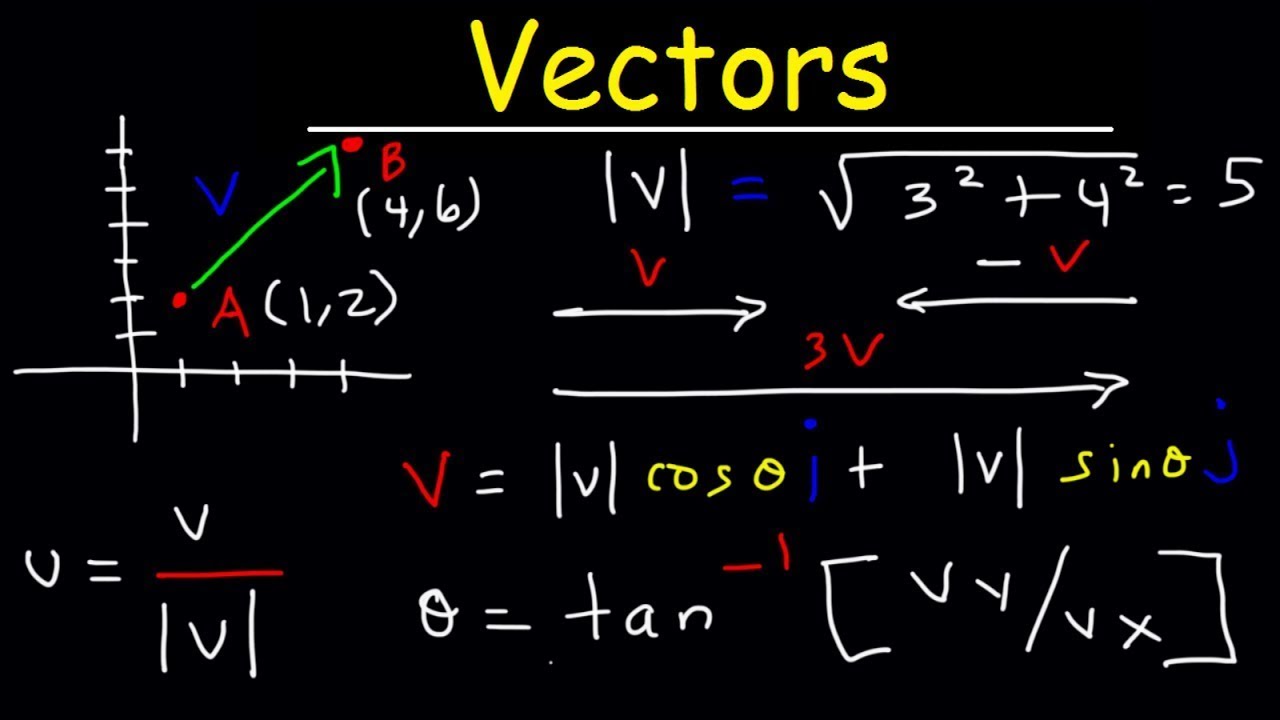 Vectors
V
B
(4,6)
A (1,2)
|V| = √3² + 4² = 5
V
- V
3V
V = |V| cosθ i + |V| sinθ j
u = V / |V|
θ = tan⁻¹ [Vy/Vx]